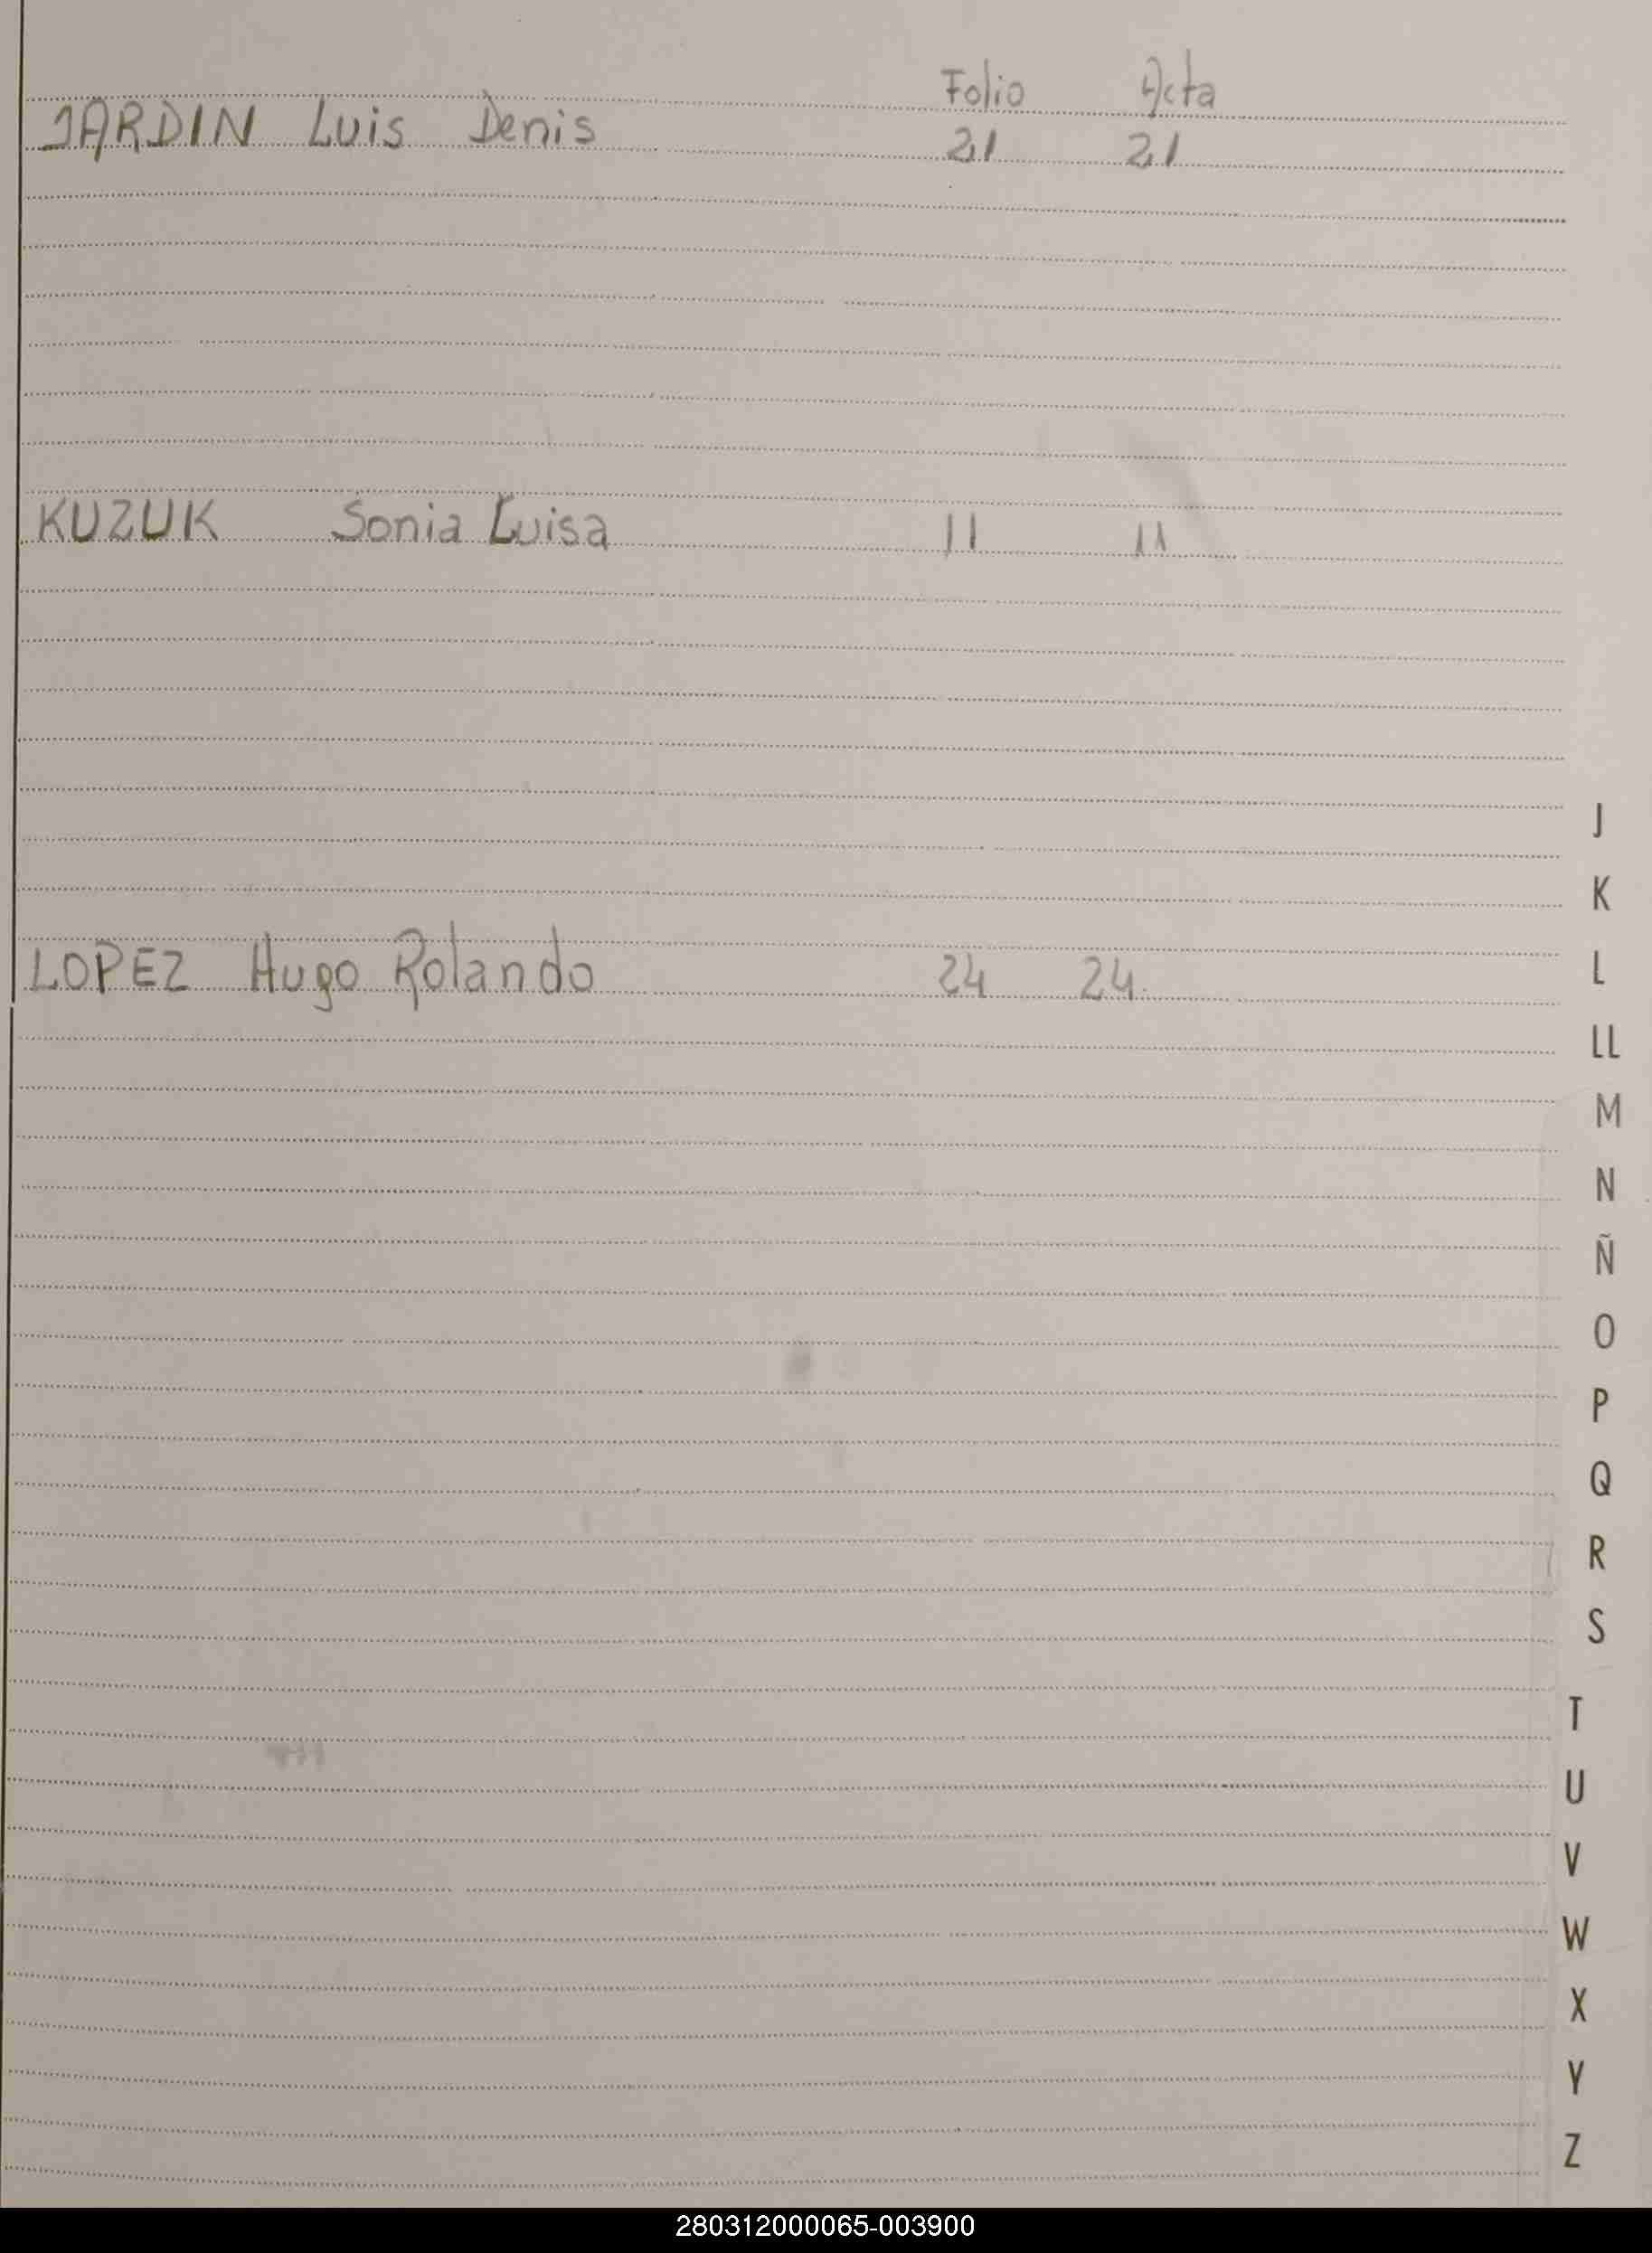 Folio Acta
JARDIN Luis Denis 21 21
KUZUK Sonia Luisa 11 11
LOPEZ Hugo Rolando 24 24
J
K
L
LL
M
N
Ñ
O
P
Q
R
S
T
U
V
W
X
Y
Z
280312000065-003900